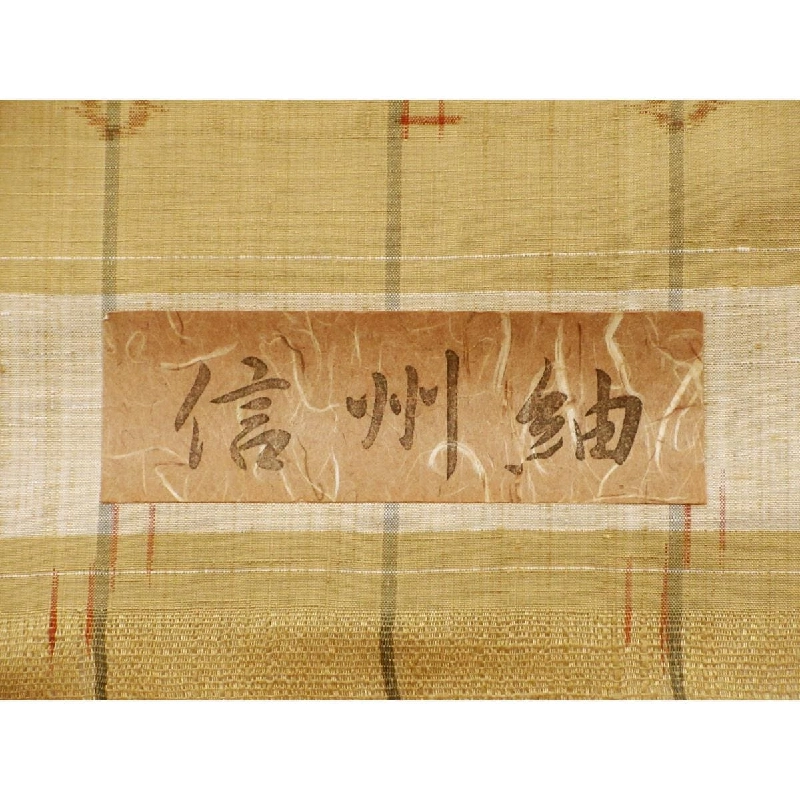 信州紬